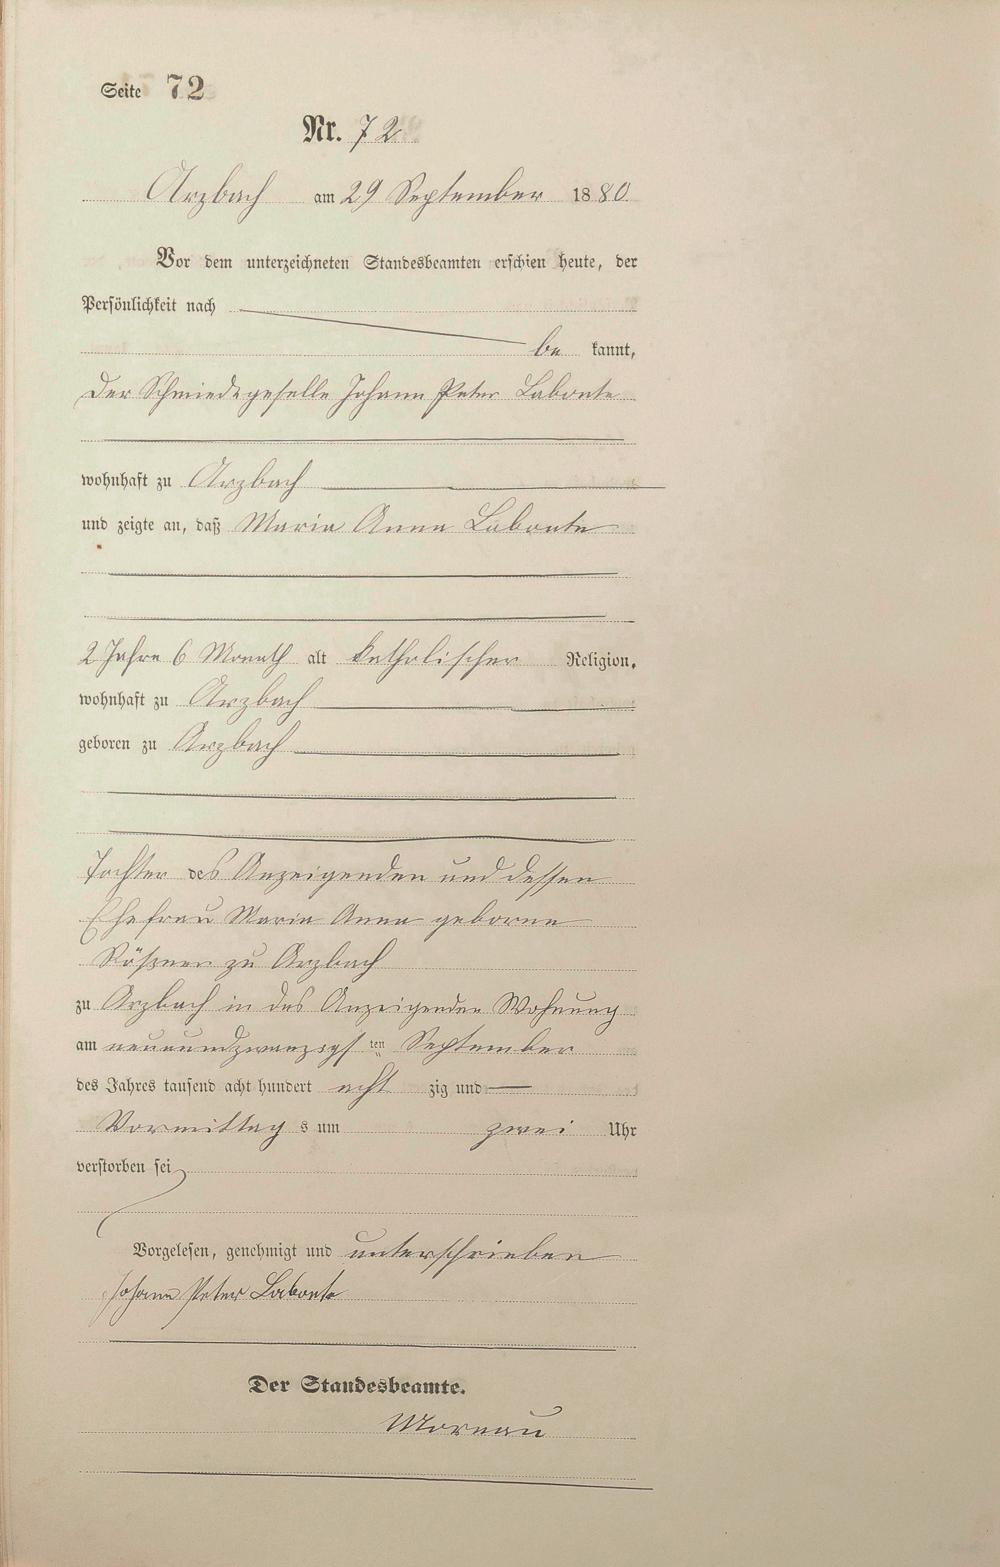 Seite 72
Nr. 72
Arzbach am 29 September 1880
Vor dem unterzeichneten Standesbeamten erschien heute, der
Persönlichkeit nach
be kannt,
der Schmiedegeselle Johann Peter Labonte
wohnhaft zu Arzbach
und zeigte an, daß Maria Anna Labonte
2 Jahre 6 Monath alt katholischer Religion,
wohnhaft zu Arzbach
geboren zu Arzbach
Tochter des Anzeigenden und dessen
Ehefrau Maria Anna geborne
zu Arzbach
zu Arzbach in des Anzeigenden Wohnung
am neunundzwanzigsten September
des Jahres tausend acht hundert acht zig und
Vormittag s um zwei Uhr
verstorben sei
Vorgelesen, genehmigt und unterschrieben
Johann Peter Labonte
Der Standesbeamte.
Moreau